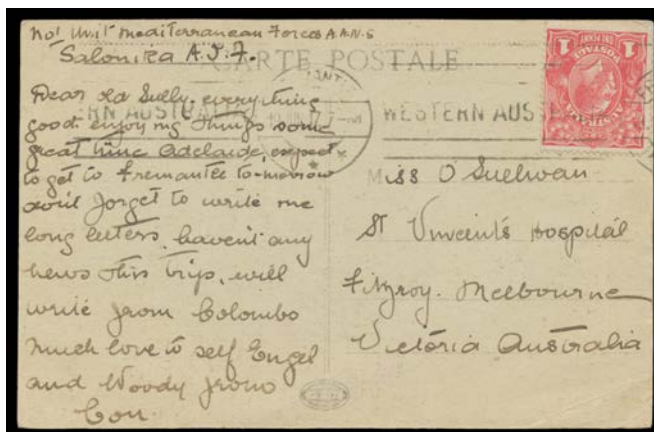 No1 Unit Mediterranean Forces A.A.N.S
Salonika A.I.F.
CARTE POSTALE
Dear old Sully, everything
good. enjoying things some
great time Adelaide, expect
to get to Fremantle to-morrow
dont forget to write me
long letters. havent any
news this trip, will
write from Colombo
much love to self Engel
and Woody from
Con
RN AUSTRA
WESTERN AUS
POSTAGE
ONE PENNY
AUSTRALIA
1 1
Miss O'Sullivan
St Vincents Hospital
Fitzroy. Melbourne
Victoria Australia